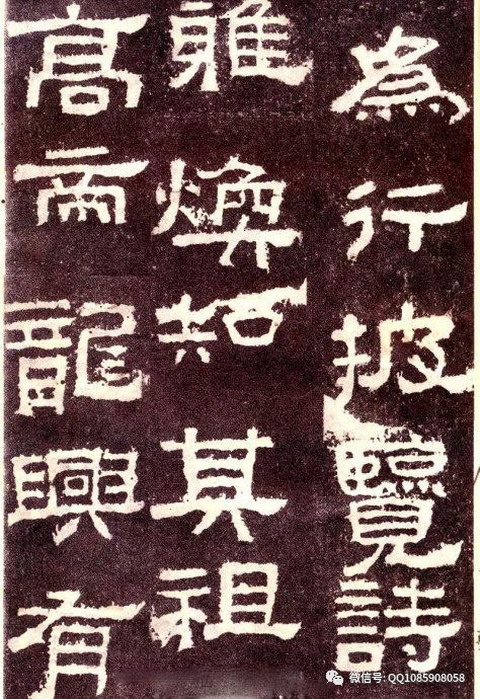 為行披覽詩
雅煥知其祖
高帝龍興有
微信号: QQ1085908058